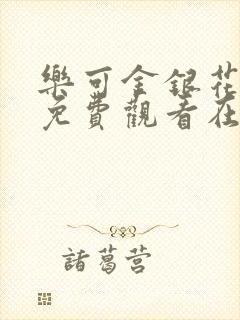 樂可金銀花
免費觀看在
諸葛营